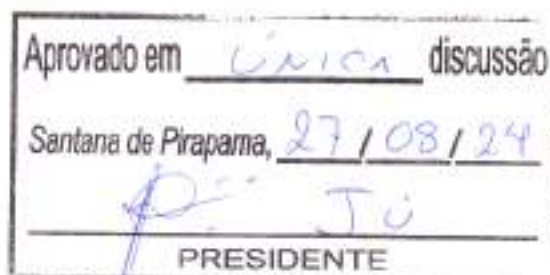 Aprovado em ÚNICA discussão
Santana de Pirapama, 27 / 08 / 24
PRESIDENTE